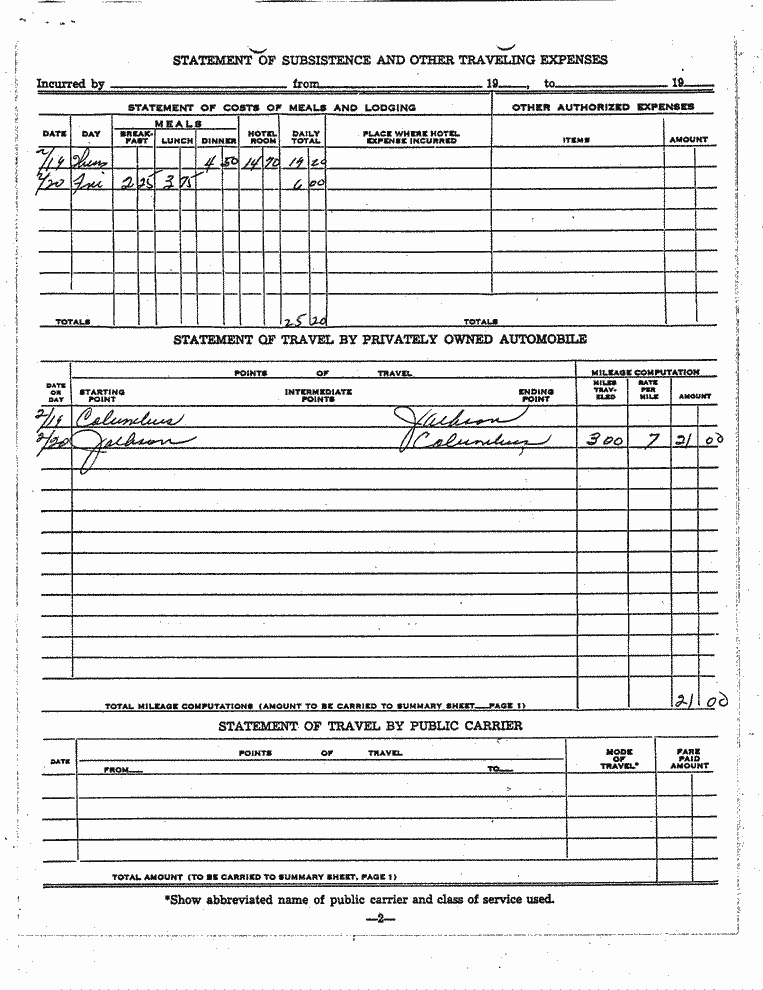 STATEMENT OF SUBSISTENCE AND OTHER TRAVELING EXPENSES
Incurred by from 19 , to 19
STATEMENT OF COSTS OF MEALS AND LODGING OTHER AUTHORIZED EXPENSES
DATE DAY MEALS BREAK-FAST LUNCH DINNER HOTEL ROOM DAILY TOTAL PLACE WHERE HOTEL EXPENSE INCURRED ITEMS AMOUNT
2/19 Thurs 4 50 14 70 19 20
2/20 Fri 2 25 3 75 6 00
TOTALS 25 20 TOTALS
STATEMENT OF TRAVEL BY PRIVATELY OWNED AUTOMOBILE
POINTS OF TRAVEL MILEAGE COMPUTATION
DATE OR DAY STARTING POINT INTERMEDIATE POINTS ENDING POINT MILES TRAV-ELED RATE PER MILE AMOUNT
2/19 Columbus Jackson
2/20 Jackson Columbus 300 7 21 00
TOTAL MILEAGE COMPUTATIONS (AMOUNT TO BE CARRIED TO SUMMARY SHEET—PAGE 1) 21 00
STATEMENT OF TRAVEL BY PUBLIC CARRIER
DATE POINTS OF TRAVEL MODE OF TRAVEL* FARE PAID AMOUNT
FROM— TO—
TOTAL AMOUNT (TO BE CARRIED TO SUMMARY SHEET, PAGE 1)
*Show abbreviated name of public carrier and class of service used.
—2—